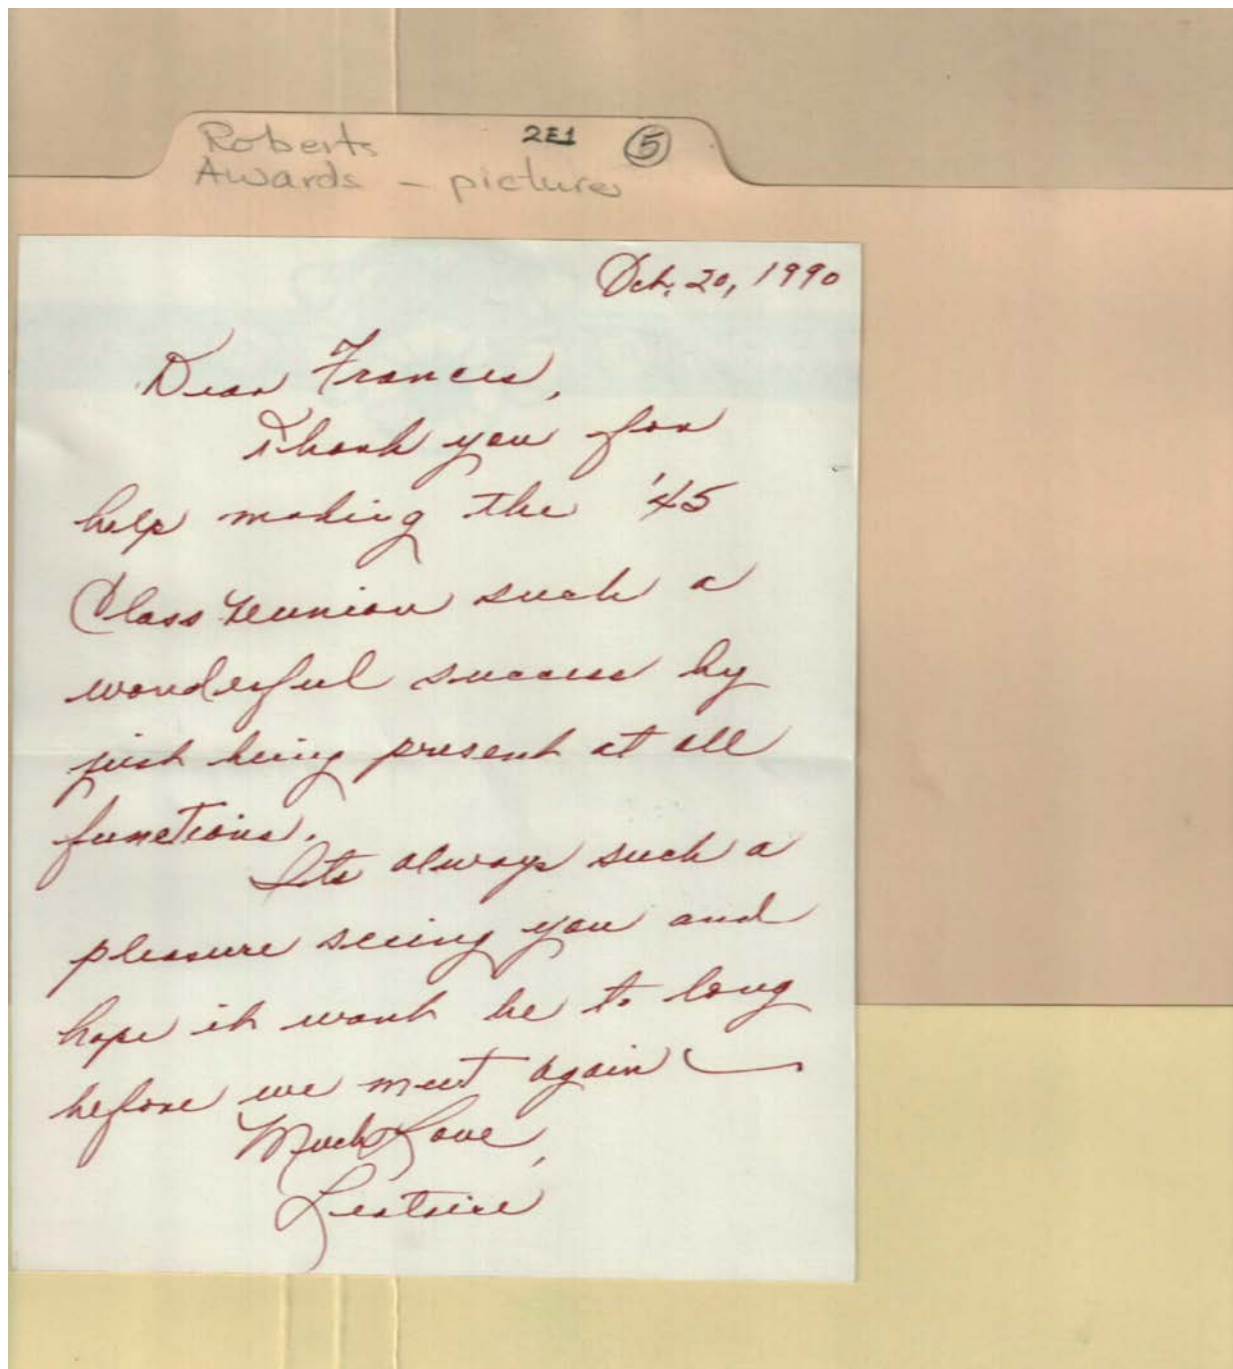 Roberts 2E1 5
Awards - picture
Oct. 20, 1990
Dear Frances,
Thank you for
help making the '45
Class reunion such a
wonderful success by
just being present at all
functions.
Its always such a
pleasure seeing you and
hope it wont be to long
before we meet again
Much Love,